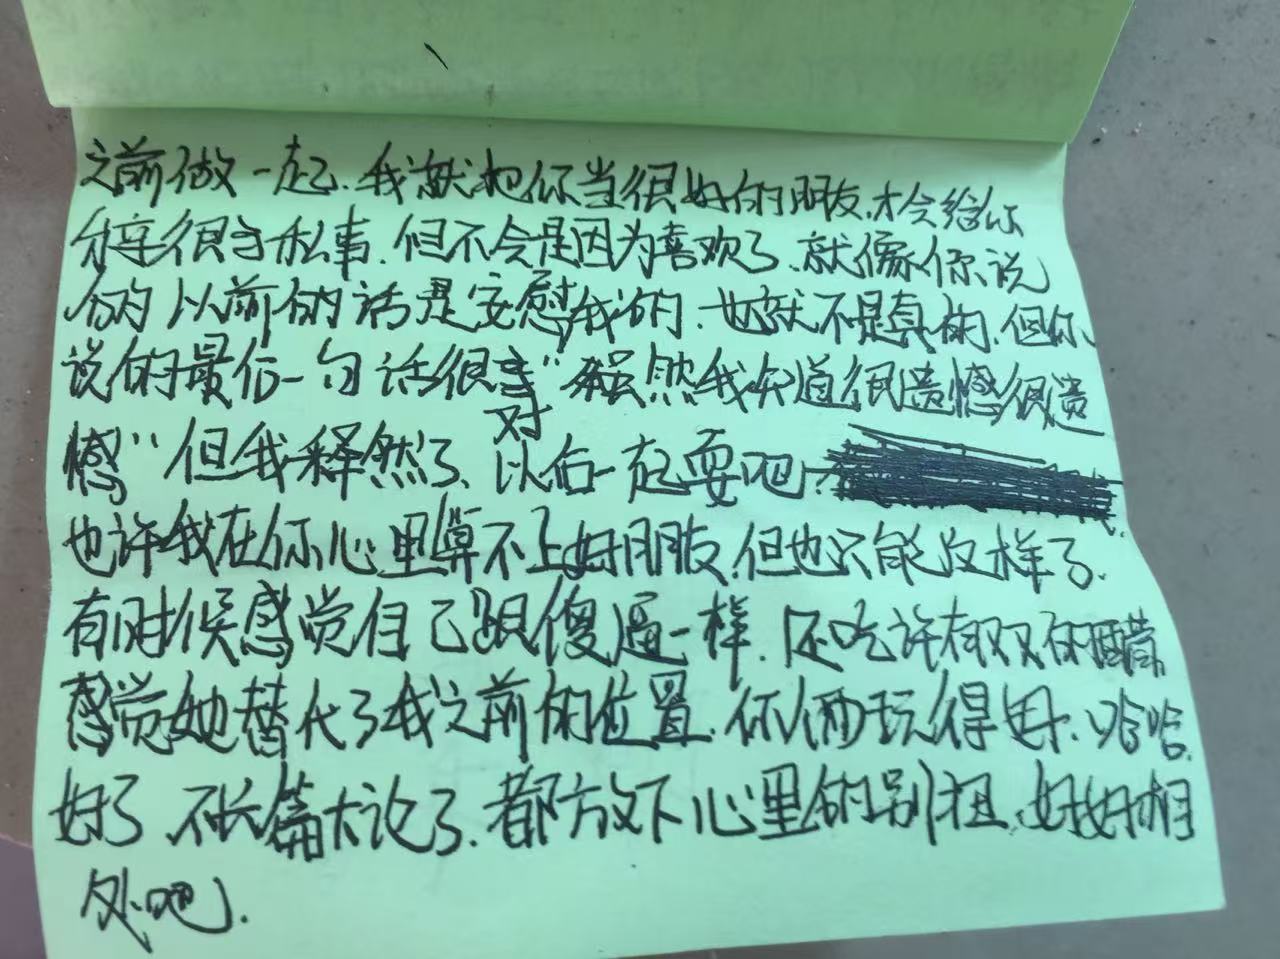 之前做一起、我就把你当很好的朋友、才会给你
分享很多私事、但不会是因为喜欢了、就像你说
的以前的话是安慰我的、也就不是真的、但你
说的最后一句话很对“虽然我知道很遗憾很遗
憾”但我释然了、以后一起耍吧、
也许我在你心里算不上好朋友、但也只能这样了、
有时候感觉自己跟傻逼一样、还吃许双双的醋
感觉她替代了我之前的位置、你俩玩得好、哈哈、
好了不长篇大论了、都放下心里的别扭、好好相
处吧、